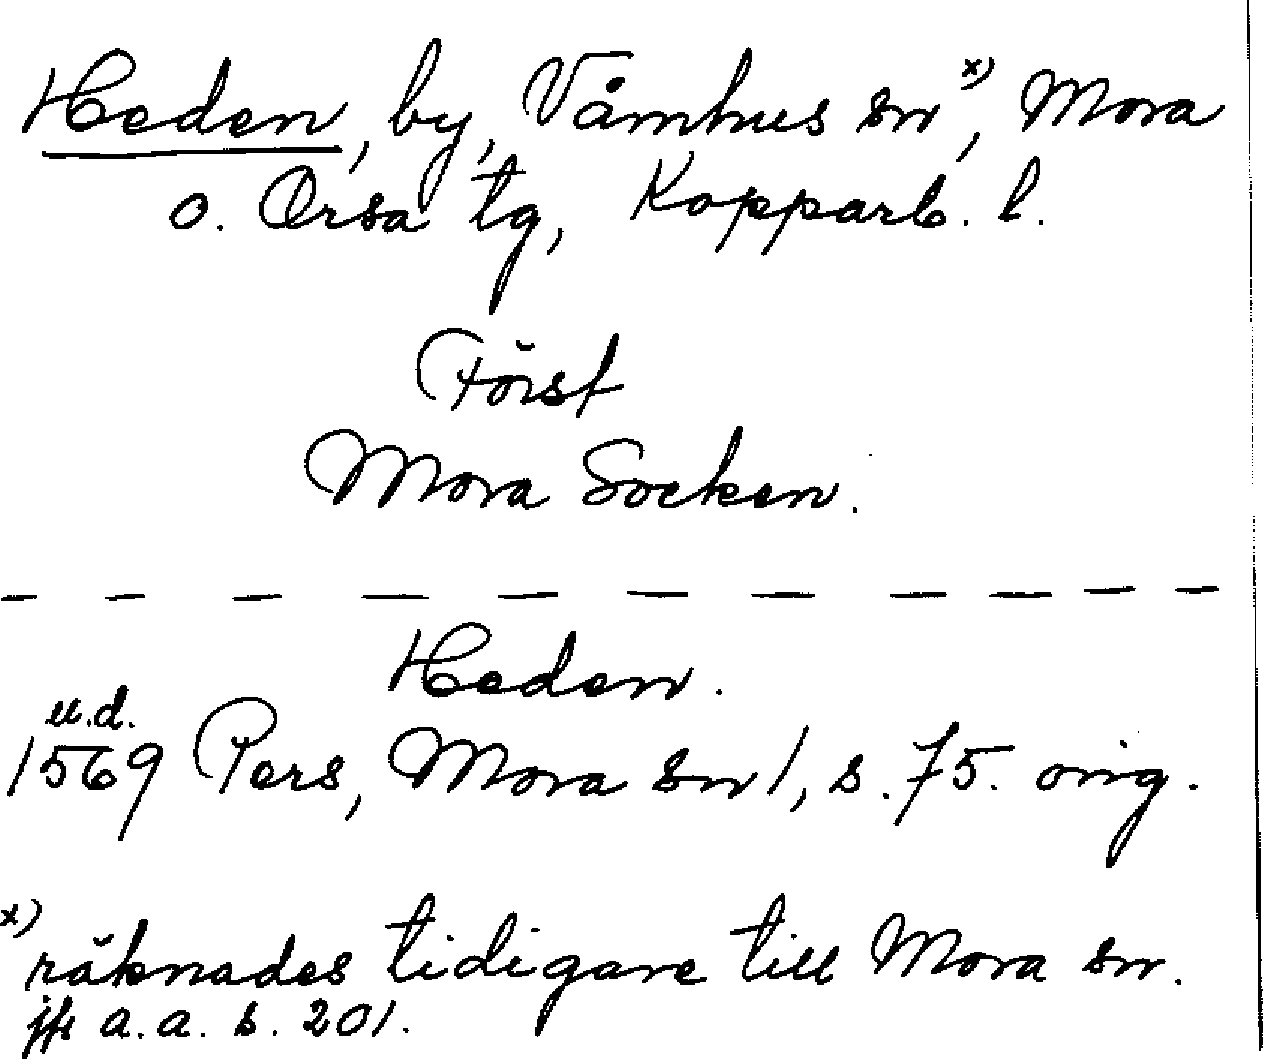 Heden, by, Våmhus sn x), Mora
o. Orsa tg, Kopparb. l.
Först
Mora Socken.
Heden.
u.d.
1569 Pers, Mora sn 1, s. 75. orig.
x)
räknades tidigare till Mora sn.
jfr a.a. s. 201.